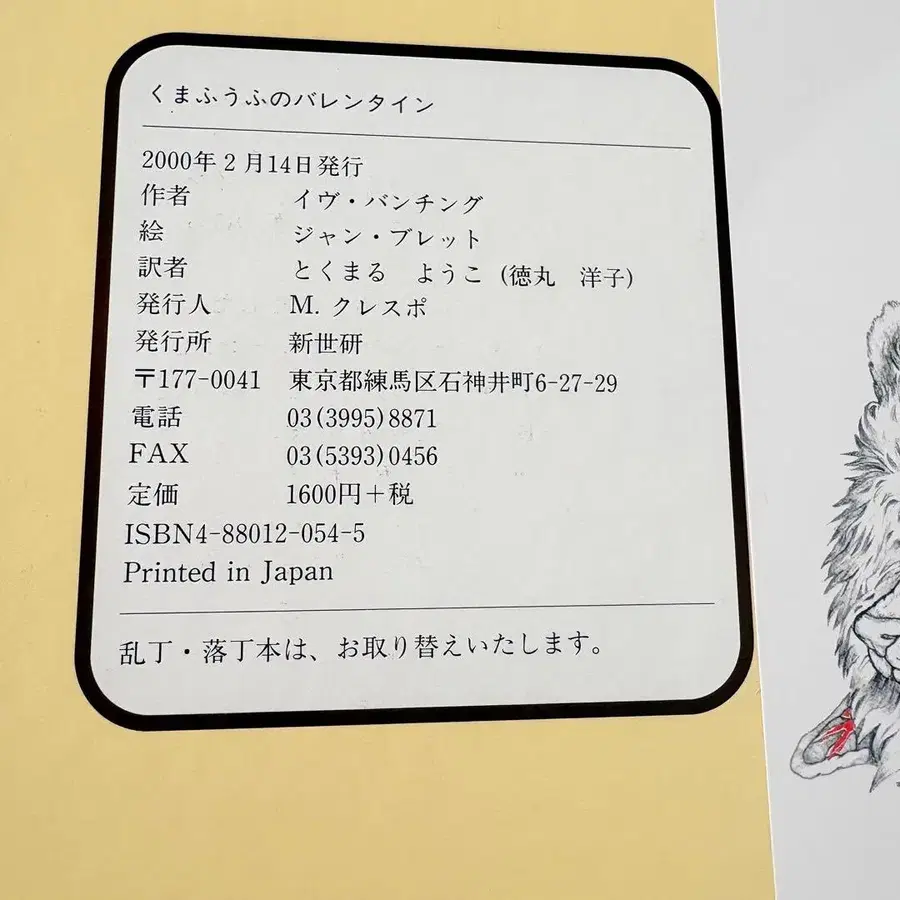 くまふうふのバレンタイン
2000年2月14日発行
作者 イヴ・バンチング
絵 ジャン・ブレット
訳者 とくまる ようこ (徳丸 洋子)
発行人 M. クレスポ
発行所 新世研
〒177-0041 東京都練馬区石神井町6-27-29
電話 03(3995)8871
FAX 03(5393)0456
定価 1600円+税
ISBN4-88012-054-5
Printed in Japan
乱丁・落丁本は、お取り替えいたします。